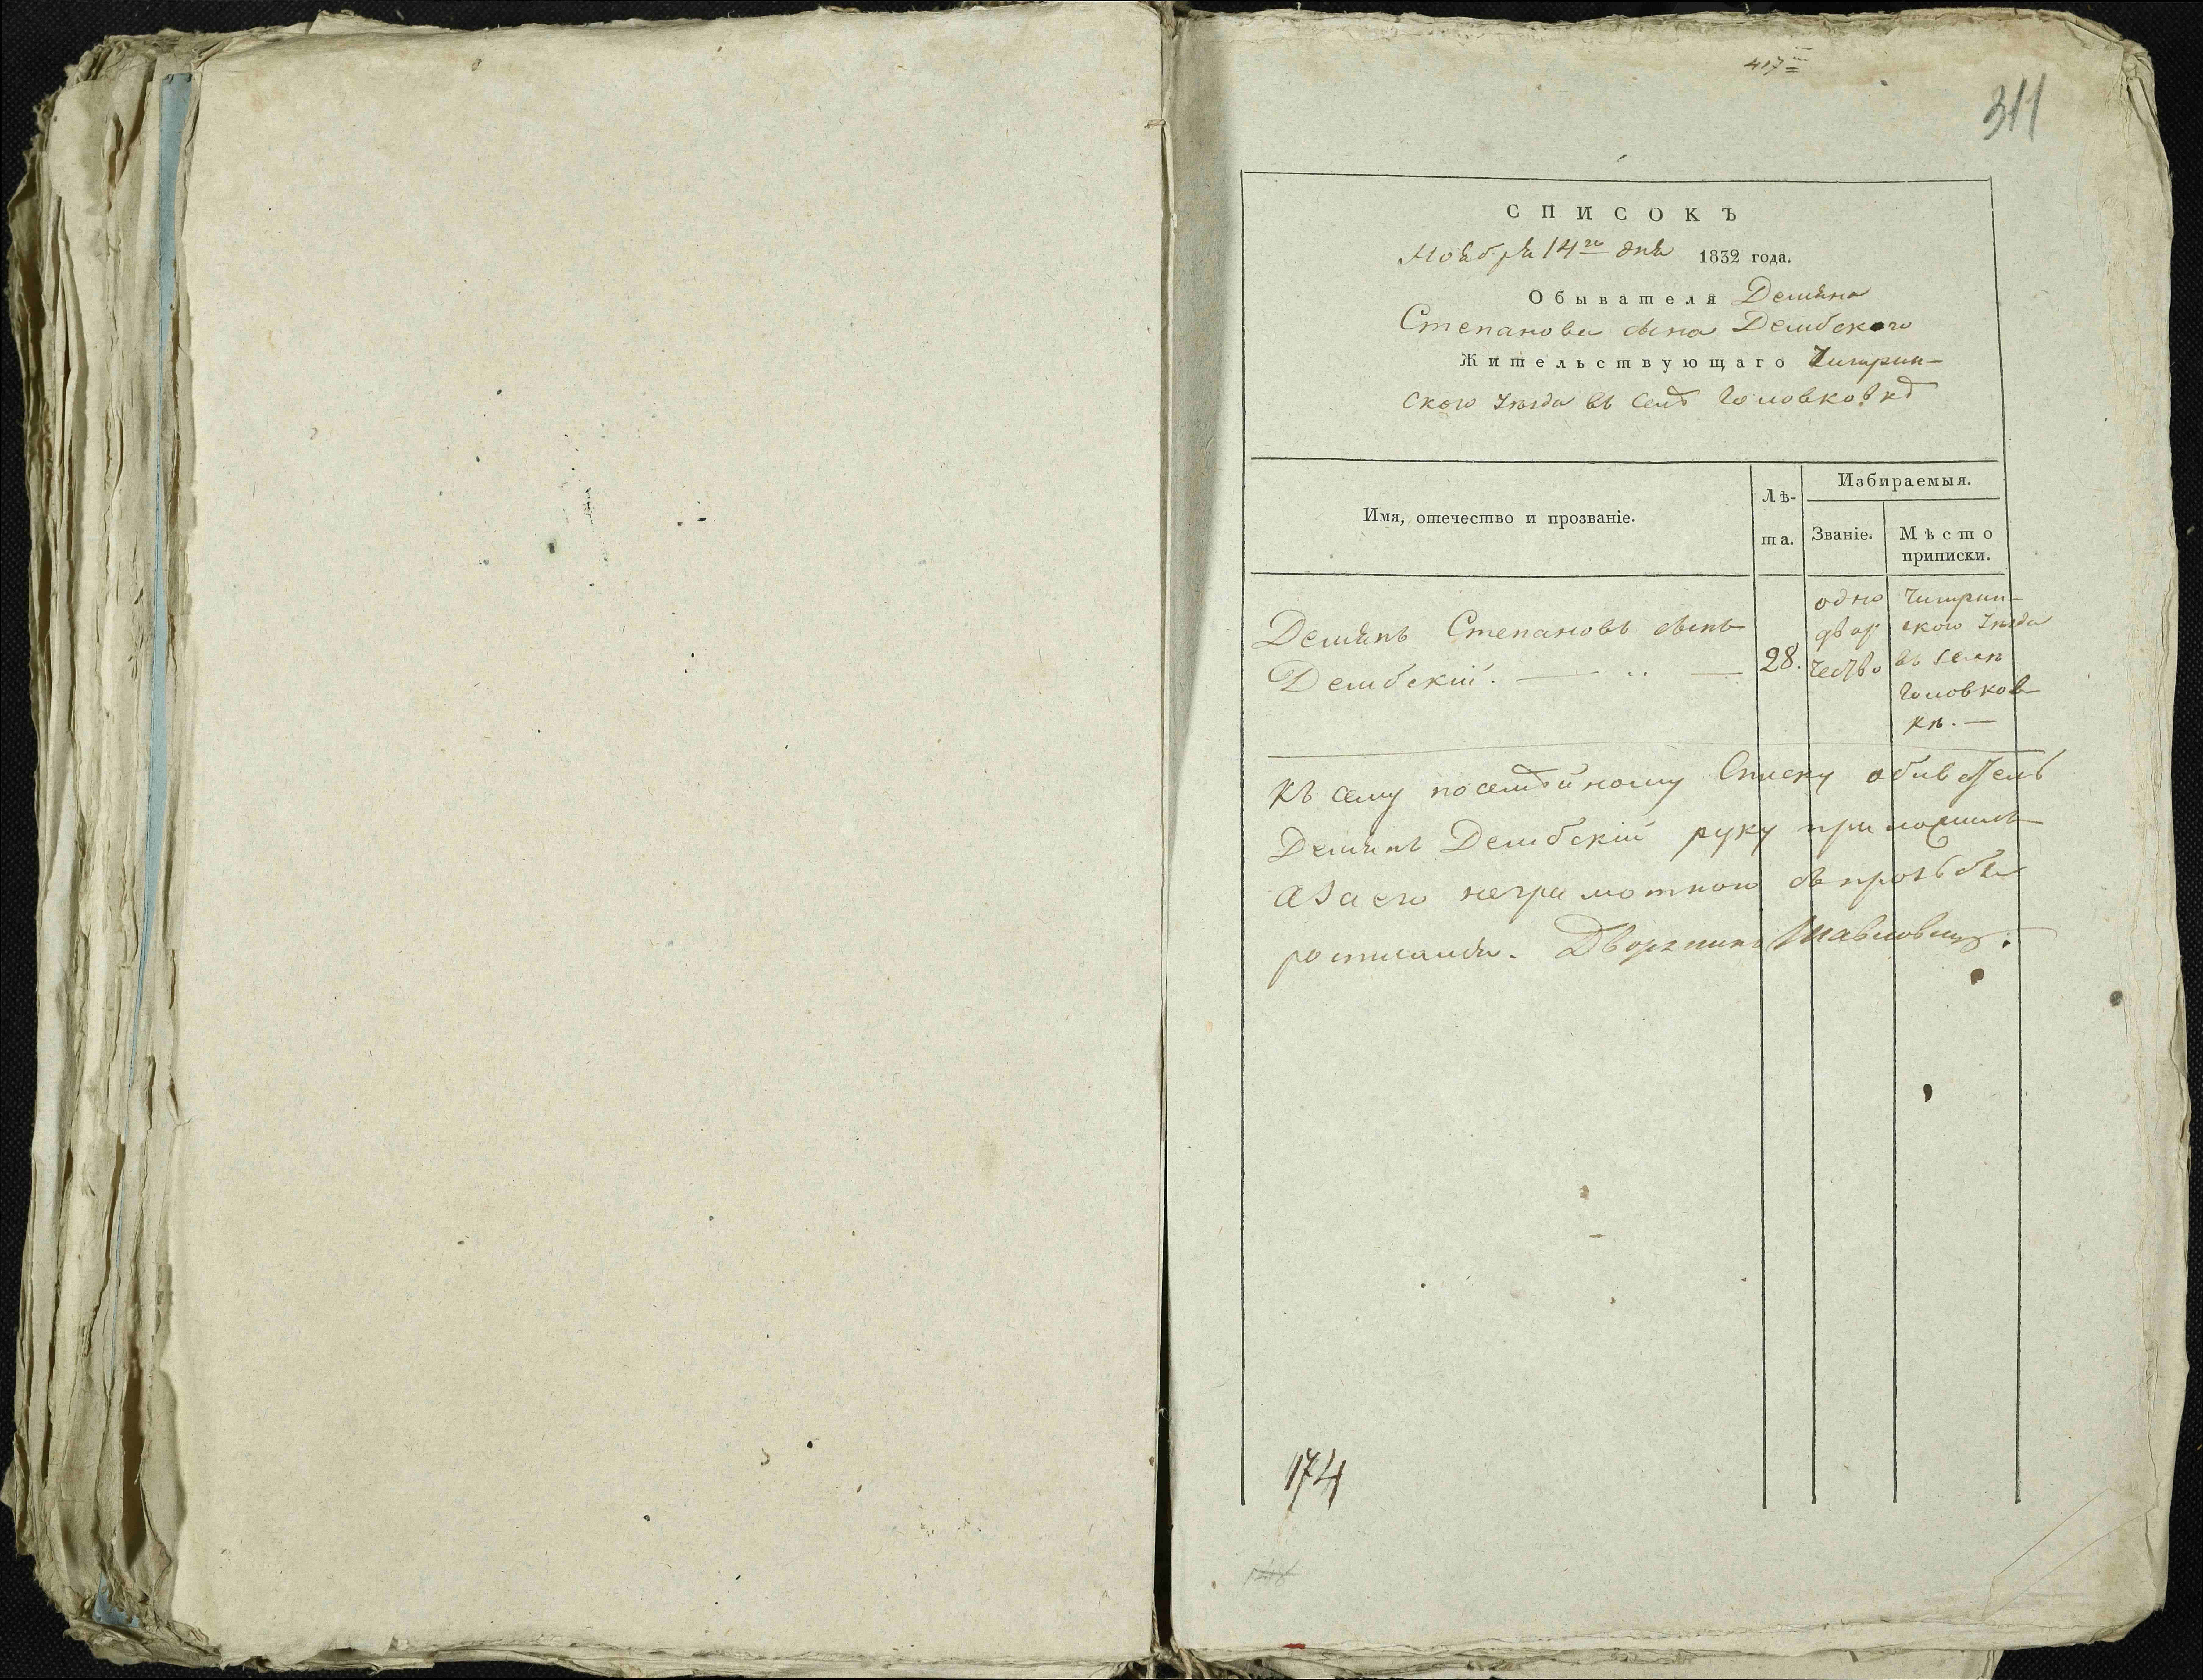 417
311
СПИСОКЪ
Ноября 14го дня 1832 года.
Обывателя Демяна
Степанова сына Дембского
Жительствующаго Чигрин-
ского уезда въ селѣ Головковкѣ
Имя, отечество и прозваніе.
Лѣ-
та.
Избираемыя.
Званіе.
Мѣсто
приписки.
Демянъ Степановъ сынъ
Дембскій. —
28.
одно
двор
чество
Чигрин-
ского уезда
въ селѣ
Головков-
кѣ. —
Къ сему посемейному Списку обиватель
Демянъ Дембский руку приложилъ
а за его неграмотного съ прозьбы
росписался. Дворянинъ
174